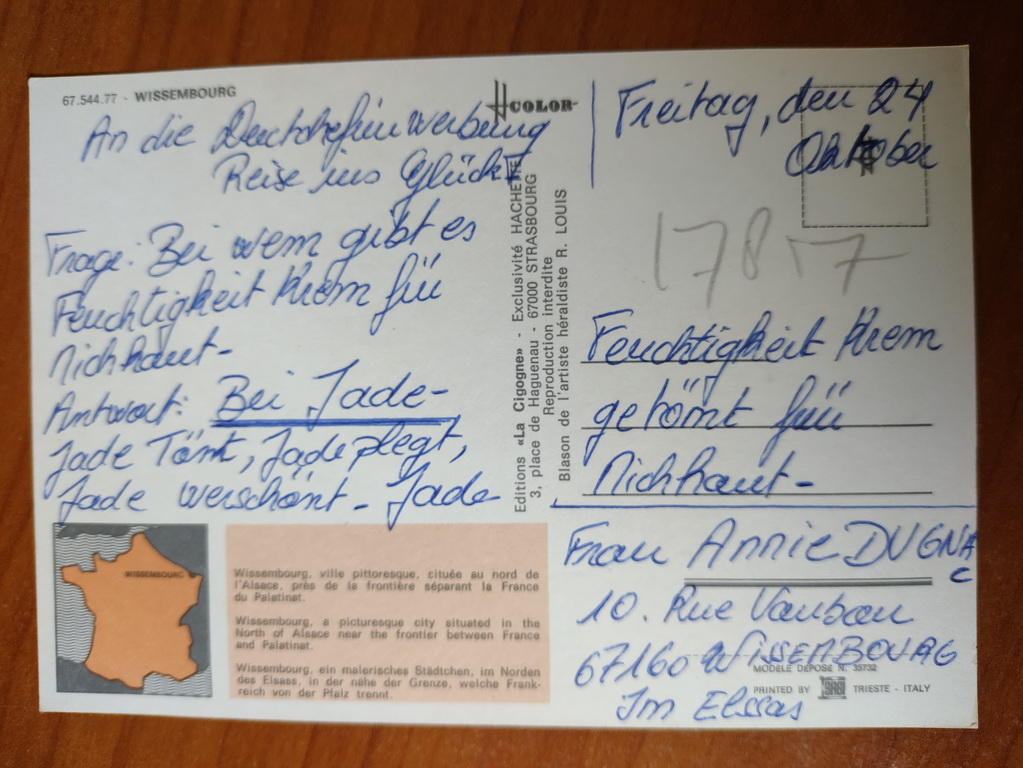 67.544.77 - WISSEMBOURG
An die
Reise ins Glück
Frage: Bei wem gibt es
Feuchtigkeit Krem für
Michhaut-
Antwort: Bei Jade-
Jade Tömt, Jade plegt,
Jade werschönt - Jade
COLOR
Editions «La Cigogne» - Exclusivité HACHETTE
3, place de Haguenau - 67000 STRASBOURG
Reproduction interdite
Blason de l'artiste héraldiste R. LOUIS
Freitag, den 24
Oktober
17817
Feuchtigkeit Krem
getömt für
Michhaut-
Frau Annie DUGNAC
10. Rue Vauban
67160 WISSEMBOURG
Im Elssas
MODELE DEPOSE N. 35732
PRINTED BY SAGI TRIESTE - ITALY
WISSEMBOURG
Wissembourg, ville pittoresque, située au nord de
l'Alsace, près de la frontière séparant la France
du Palatinat.
Wissembourg, a picturesque city situated in the
North of Alsace near the frontier between France
and Palatinat.
Wissembourg, ein malerisches Städtchen, im Norden
des Elsass, in der nähe der Grenze, welche Frank-
reich von der Pfalz trennt.